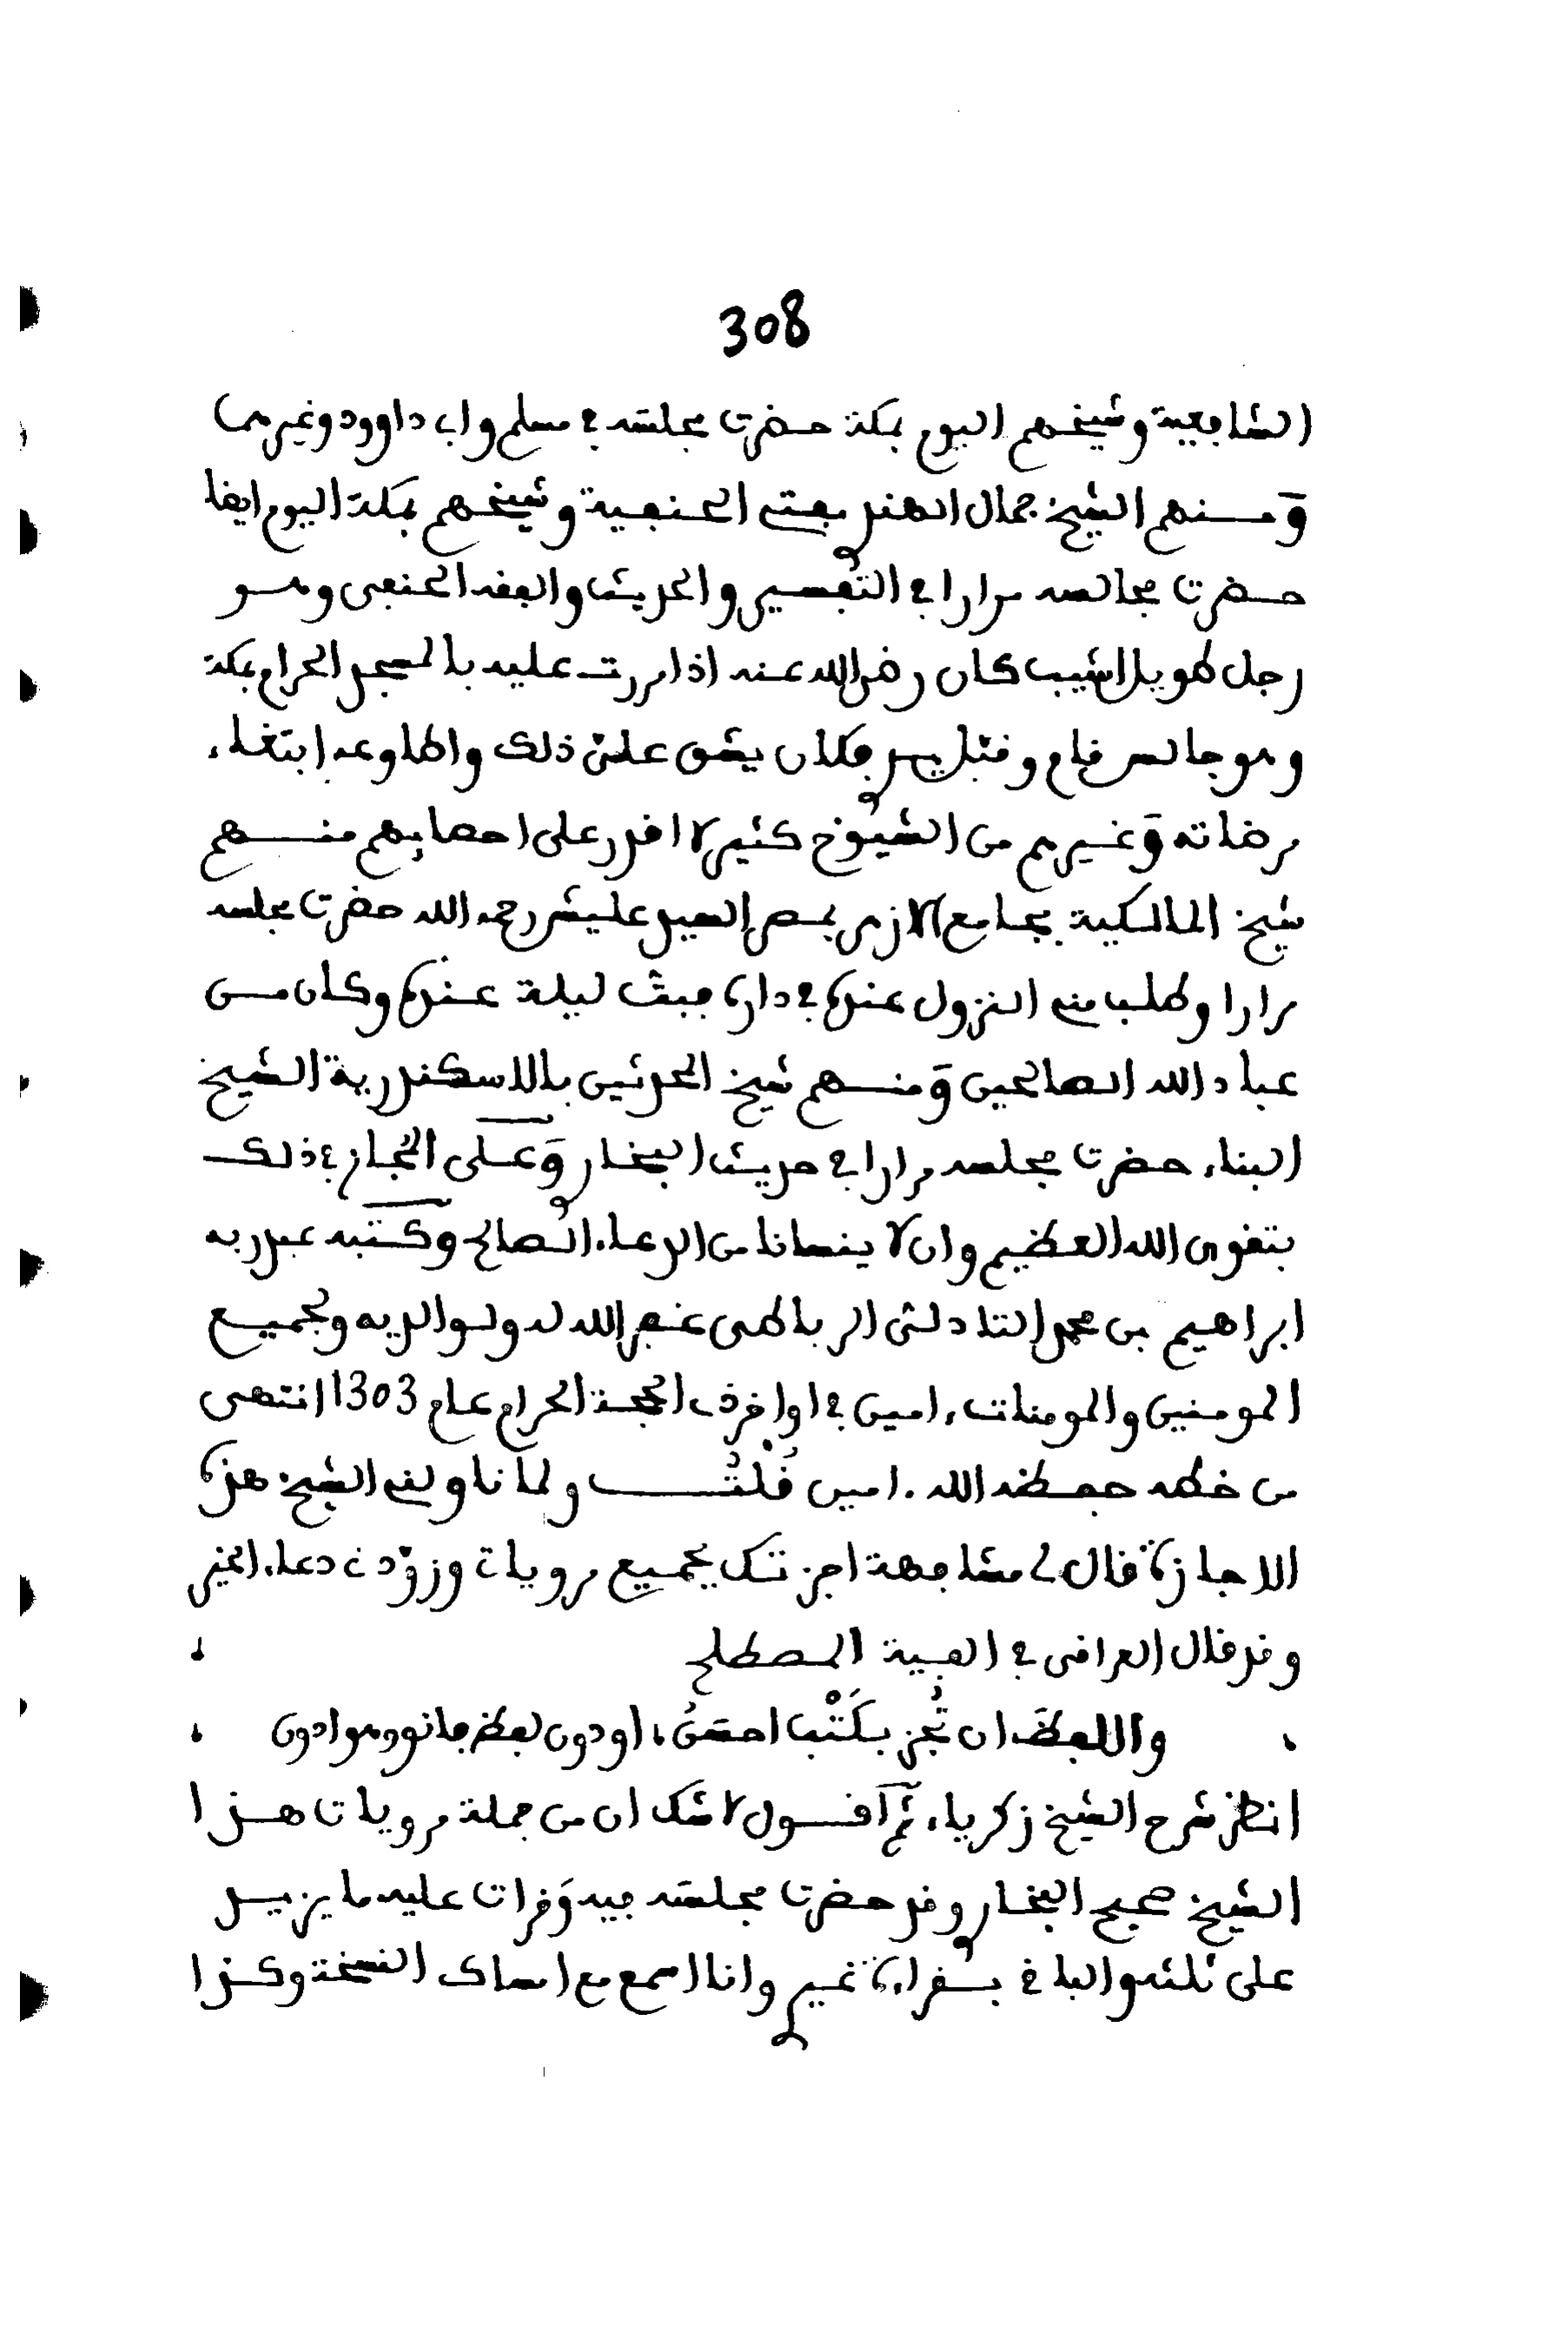 308
الشافعية وشيخهم اليوم بمكة حضرت مجلسه في مسلم وابي داوود وغيرهما
ومنهم الشيخ جمال الهندي مفتي الحنفية وشيخهم بمكة اليوم ايضا
حضرت مجالسه مرارا في التفسير والحديث والفقه الحنفي وهو
رجل طويل اشيب كان رضي الله عنه اذا مررت عليه بالمسجد الحرام بمكة
وهو جالس قام وقبل يدي فكان يشق علي ذلك واطاوعه ابتغاء
مرضاته وغيرهم من الشيوخ كثير لا اقدر على احصايهم منهم
شيخ المالكية بجامع الازهر بمصر السيد عليش رحمه الله حضرت مجلسه
مرارا وطلب مني النزول عنده في داره فبت ليلة عنده وكان من
عباد الله الصالحين ومنهم شيخ المحدثين بالاسكندرية الشيخ
البناء حضرت مجلسه مرارا في حديث البخاري وعلى المجاز في ذلك
بتقوى الله العظيم وان لا ينسانا من الدعاء الصالح وكتبه عبد ربه
ابراهيم بن محمد التادلي الرباطي غفر الله له ولوالديه ولجميع
المومنين والمومنات ءامين في اواخر ذي الحجة الحرام عام 1303 انتهى
من خطه حفظه الله ءامين قلت ولما ناولني الشيخ هذه
الاجازة قال لي مشافهة اجزتك بجميع مروياتي وزودني دعاء الخير
وقد قال العراقي في الفية المصطلح
واللفظ ان تجز بكتب احسن ، او دون لفظ فانو وهو ادون
انظر شرح الشيخ زكرياء ثم اقول لا شك ان من جملة مرويات هذا
الشيخ صحيح البخاري وقد حضرت مجلسه فيه وقرات عليه ما يزيد
على ثلثه والباقي بقراءة غيري وانا اسمع مع امساك النسخة وكذا